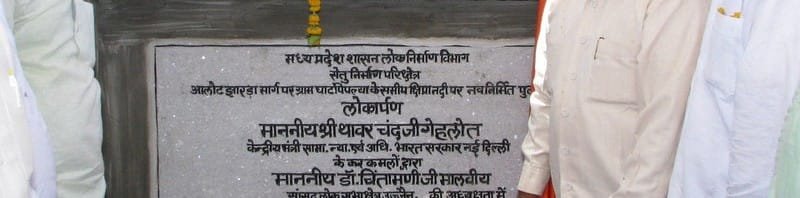 मध्य प्रदेश शासन लोक निर्माण विभाग
सेतु निर्माण परिक्षेत्र
आलोट झारड़ा मार्ग पर ग्राम घाटोपिपल्या के समीप क्षिप्रा नदी पर नवनिर्मित
लोकार्पण
माननीय श्री थावर चंद जी गेहलोत
केन्द्रीय मंत्री सामा. न्या. एवं अधि. भारत सरकार नई दिल्ली
के कर कमलों द्वारा
माननीय डॉ. चिंतामणी जी मालवीय
सांसद लोक सभा क्षेत्र उज्जैन. की अध्यक्षता में